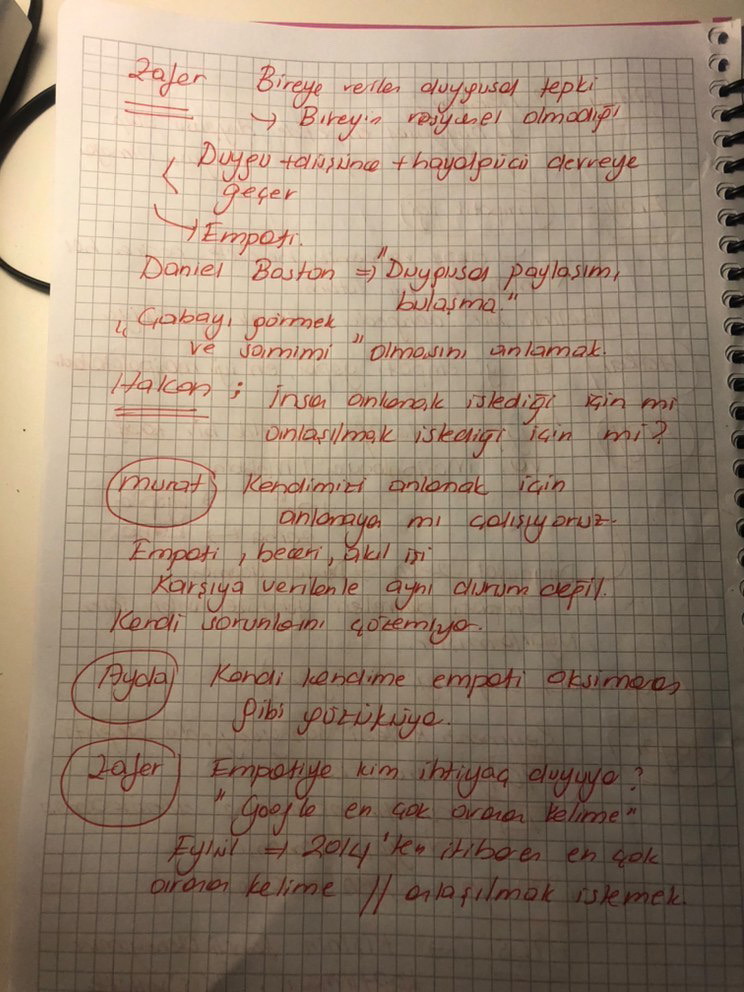 Zafer Bireye verilen duygusal tepki
→ Bireyin rasyonel olmadığı
Duygu + düşünce + hayalgücü devreye
geçer
→ Empati.
Daniel Boston => "Duygusal paylaşım,
bulaşma."
"Çabayı görmek
ve samimi" olmasını anlamak.
Hakan ; İnsan anlamak istediği için mi
anlaşılmak istediği için mi?
Murat Kendimizi anlamak için
anlamaya mı çalışıyoruz.
Empati, beceri, akıl işi
Karşıya verilenle aynı durum değil.
Kendi sorunlarını çözemiyor.
Ayda Kendi kendime empati oksimoron
gibi gözüküyo.
Zafer Empatiye kim ihtiyaç duyuyo?
"Google en çok aranan kelime"
Eylül => 2014'ten itibaren en çok
aranan kelime // anlaşılmak istemek.